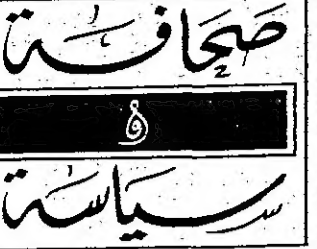 صحافة
و
سياسة